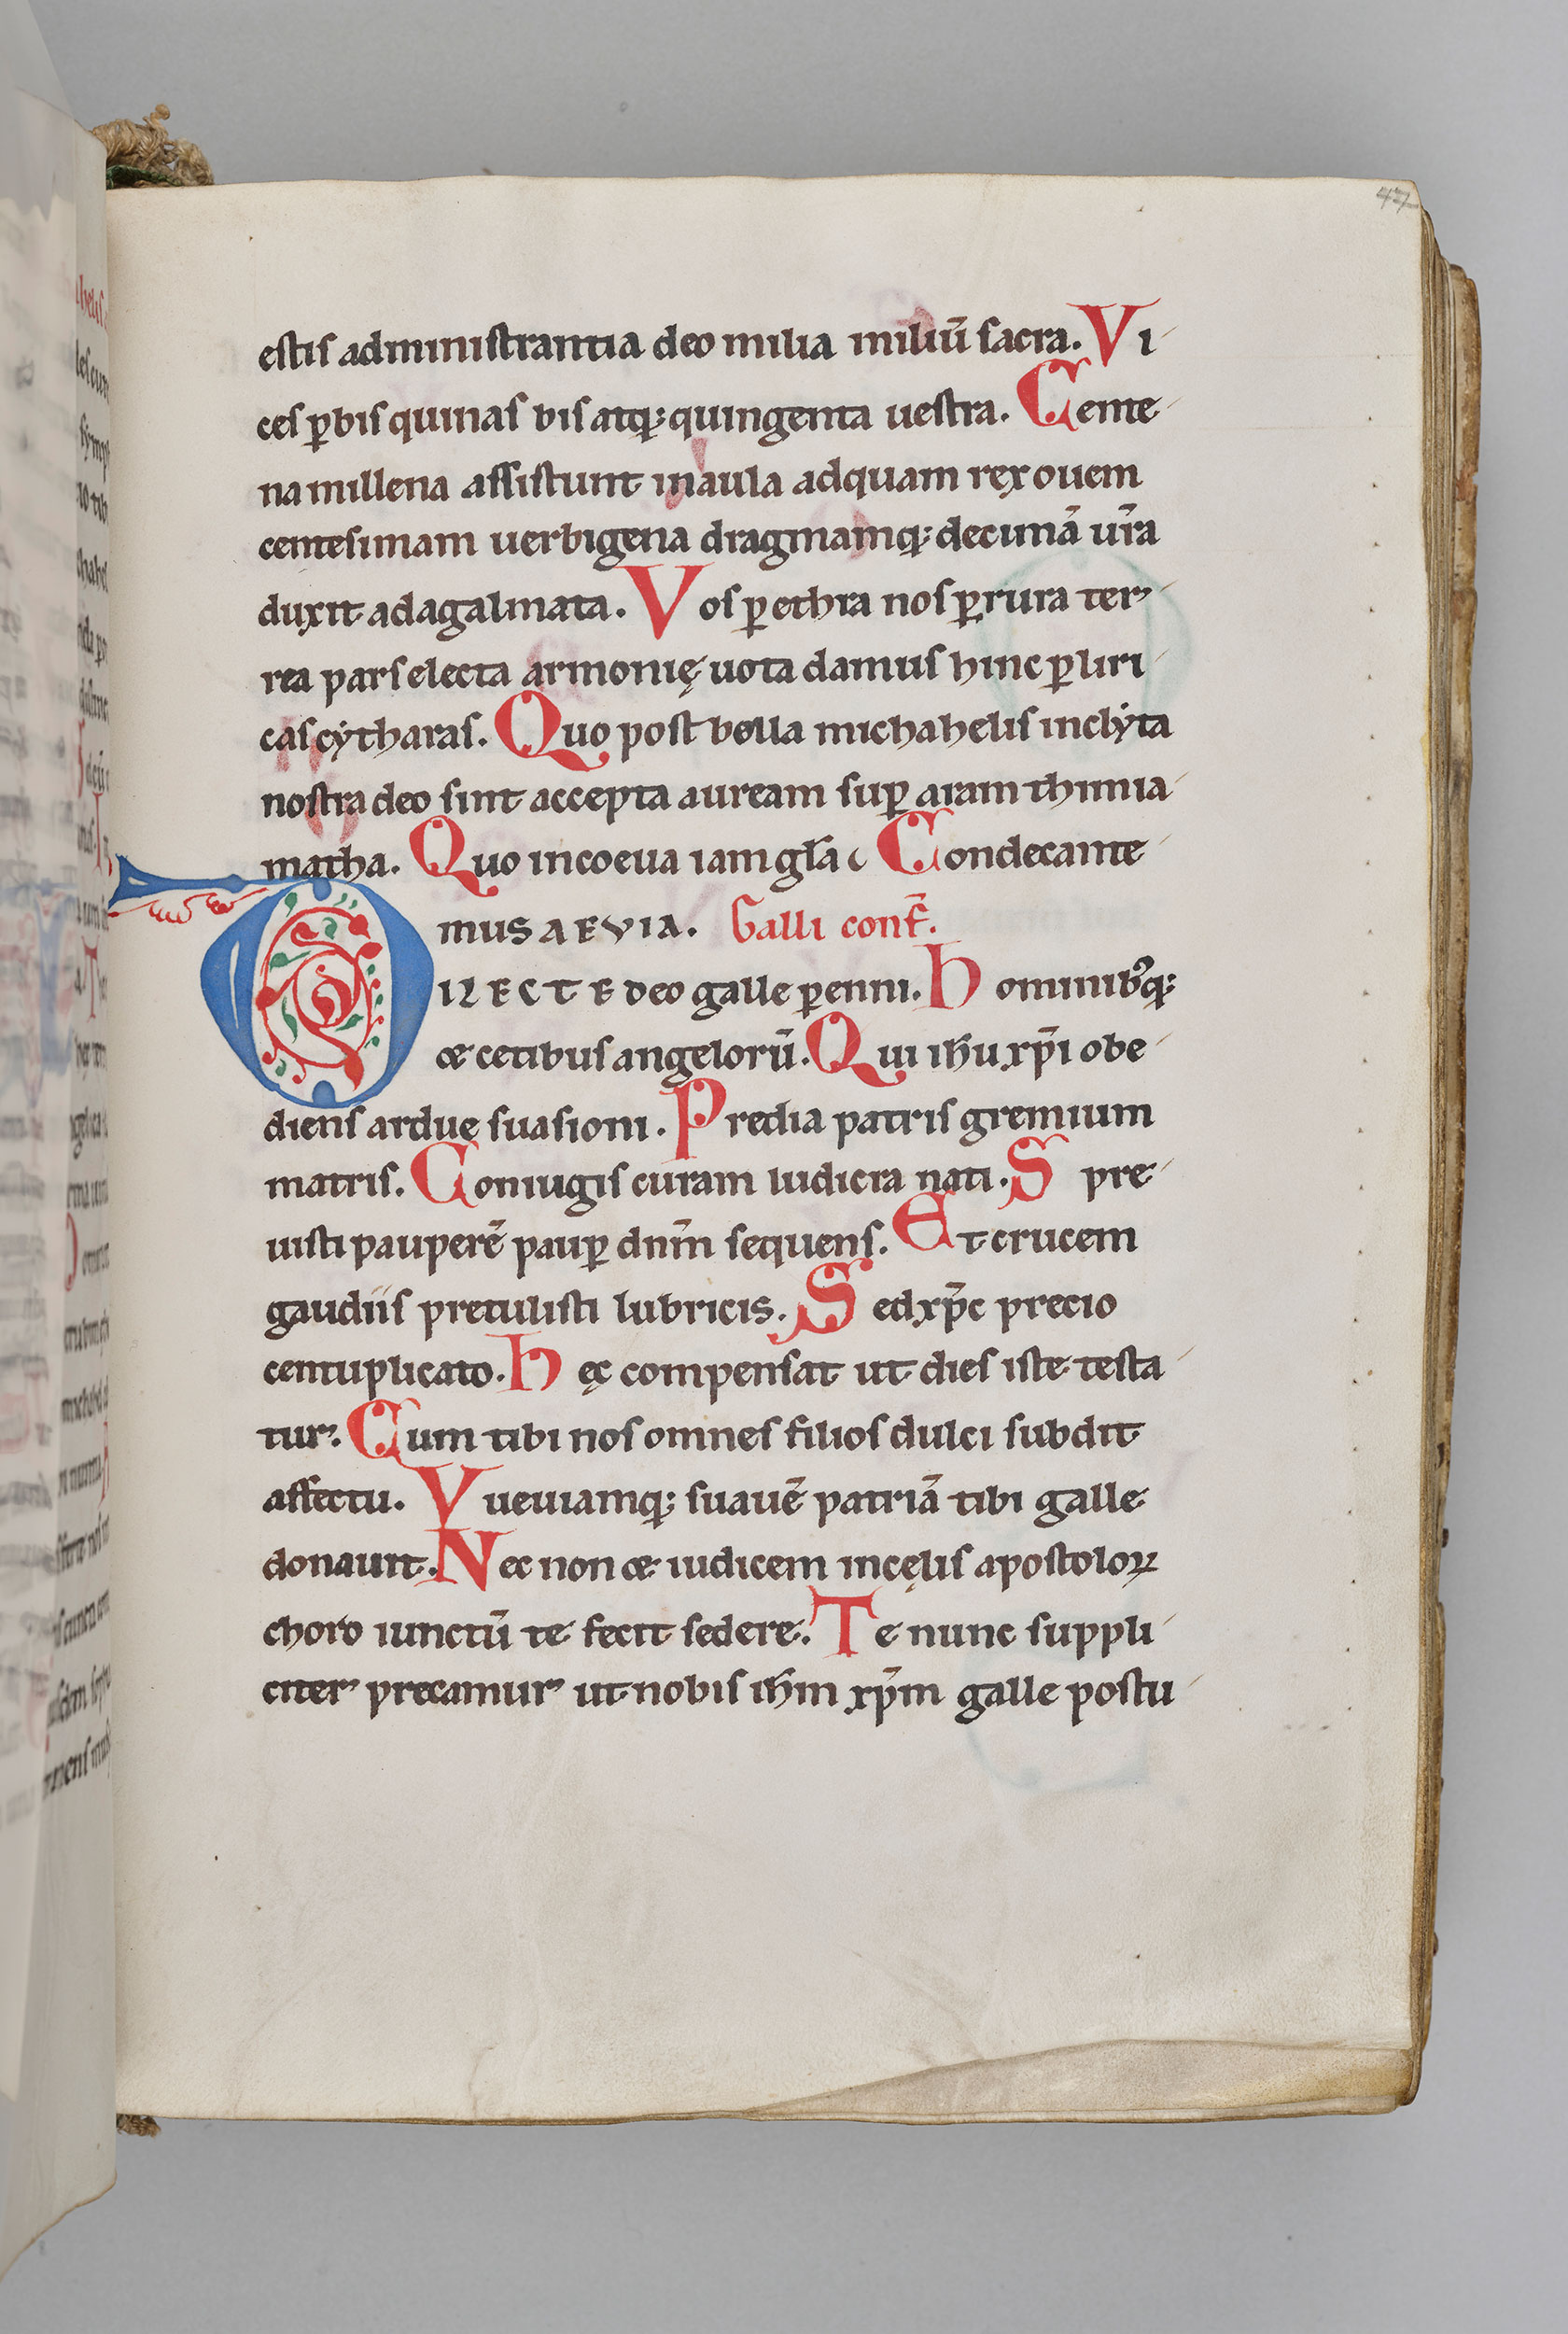 47
estis administrantia deo milia miliū sacra. Vi
ces ꝑ bis quinas bis atq; quingenta uestra. Cente
na millena assistunt in aula ad quam rex ouem
centesimam uerbigena dragmamq; decimā ur̄a
duxit ad agalmata. Vos ꝑ ethra nos ꝑ rura ter
rea pars electa armonię uota damus hinc ꝑ liri
cas cytharas. Quo post bella michahelis inclyta
nostra deo sint accepta auream suꝑ aram thimia
matha. Quo in coeua iam gl̄a Condecante
mus AEVIA. Galli conf̄.
DILECTE deo galle ꝑenni. Hominib᷒q;
& cetibus angelorū. Qui ih̄u xp̄i obe
diens ardue suasioni. Predia patris gremium
matris. Coniugis curam ludicra nati. Spre
uisti pauperē pauꝑ dn̄m sequens. Et crucem
gaudiis pretulisti lubricis. Sed xp̄c precio
centuplicato. Hęc compensat ut dies iste testa
tur. Cum tibi nos omnes filios dulci subdit
affectu. Vueuiamq; suauē patriā tibi galle
donauit. Nec non & iudicem in cęlis apostoloꝝ
choro iunctū te fecit sedere. Te nunc suppli
citer precamur ut nobis ih̄m xp̄m galle postu